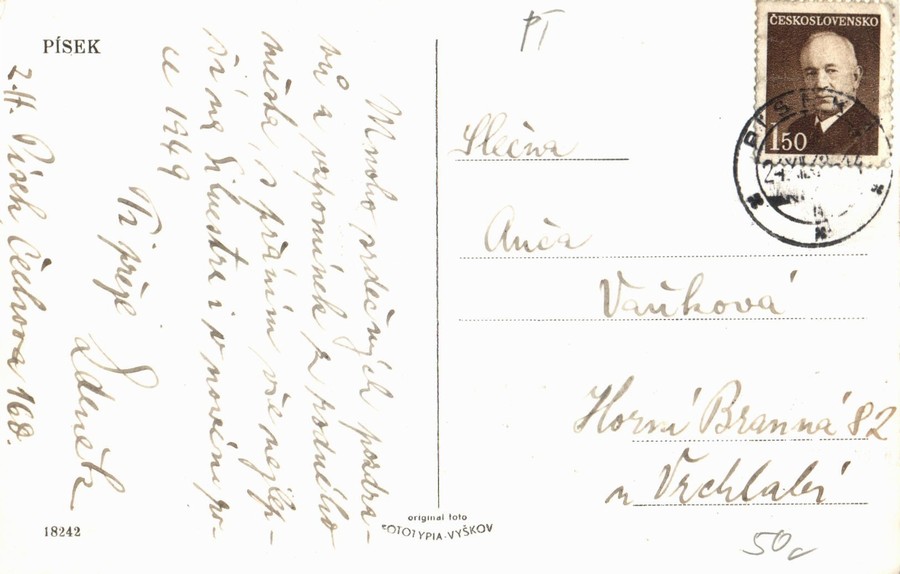 PÍSEK
Mnoho srdečných pozdra-
vů a vzpomínek z rodného
města, s přáním vše nejlep-
ší na Silvestra i v novém ro-
ce 1949
Ti přeje
Zdeněk
Písek, Čechova 168.
18242
original foto
FOTOTYPIA-VYŠKOV
PT
ČESKOSLOVENSKO
1 50
PÍSEK
Slečna
Anča
Vaňková
Horní Branná 82
u Vrchlabí
50,-